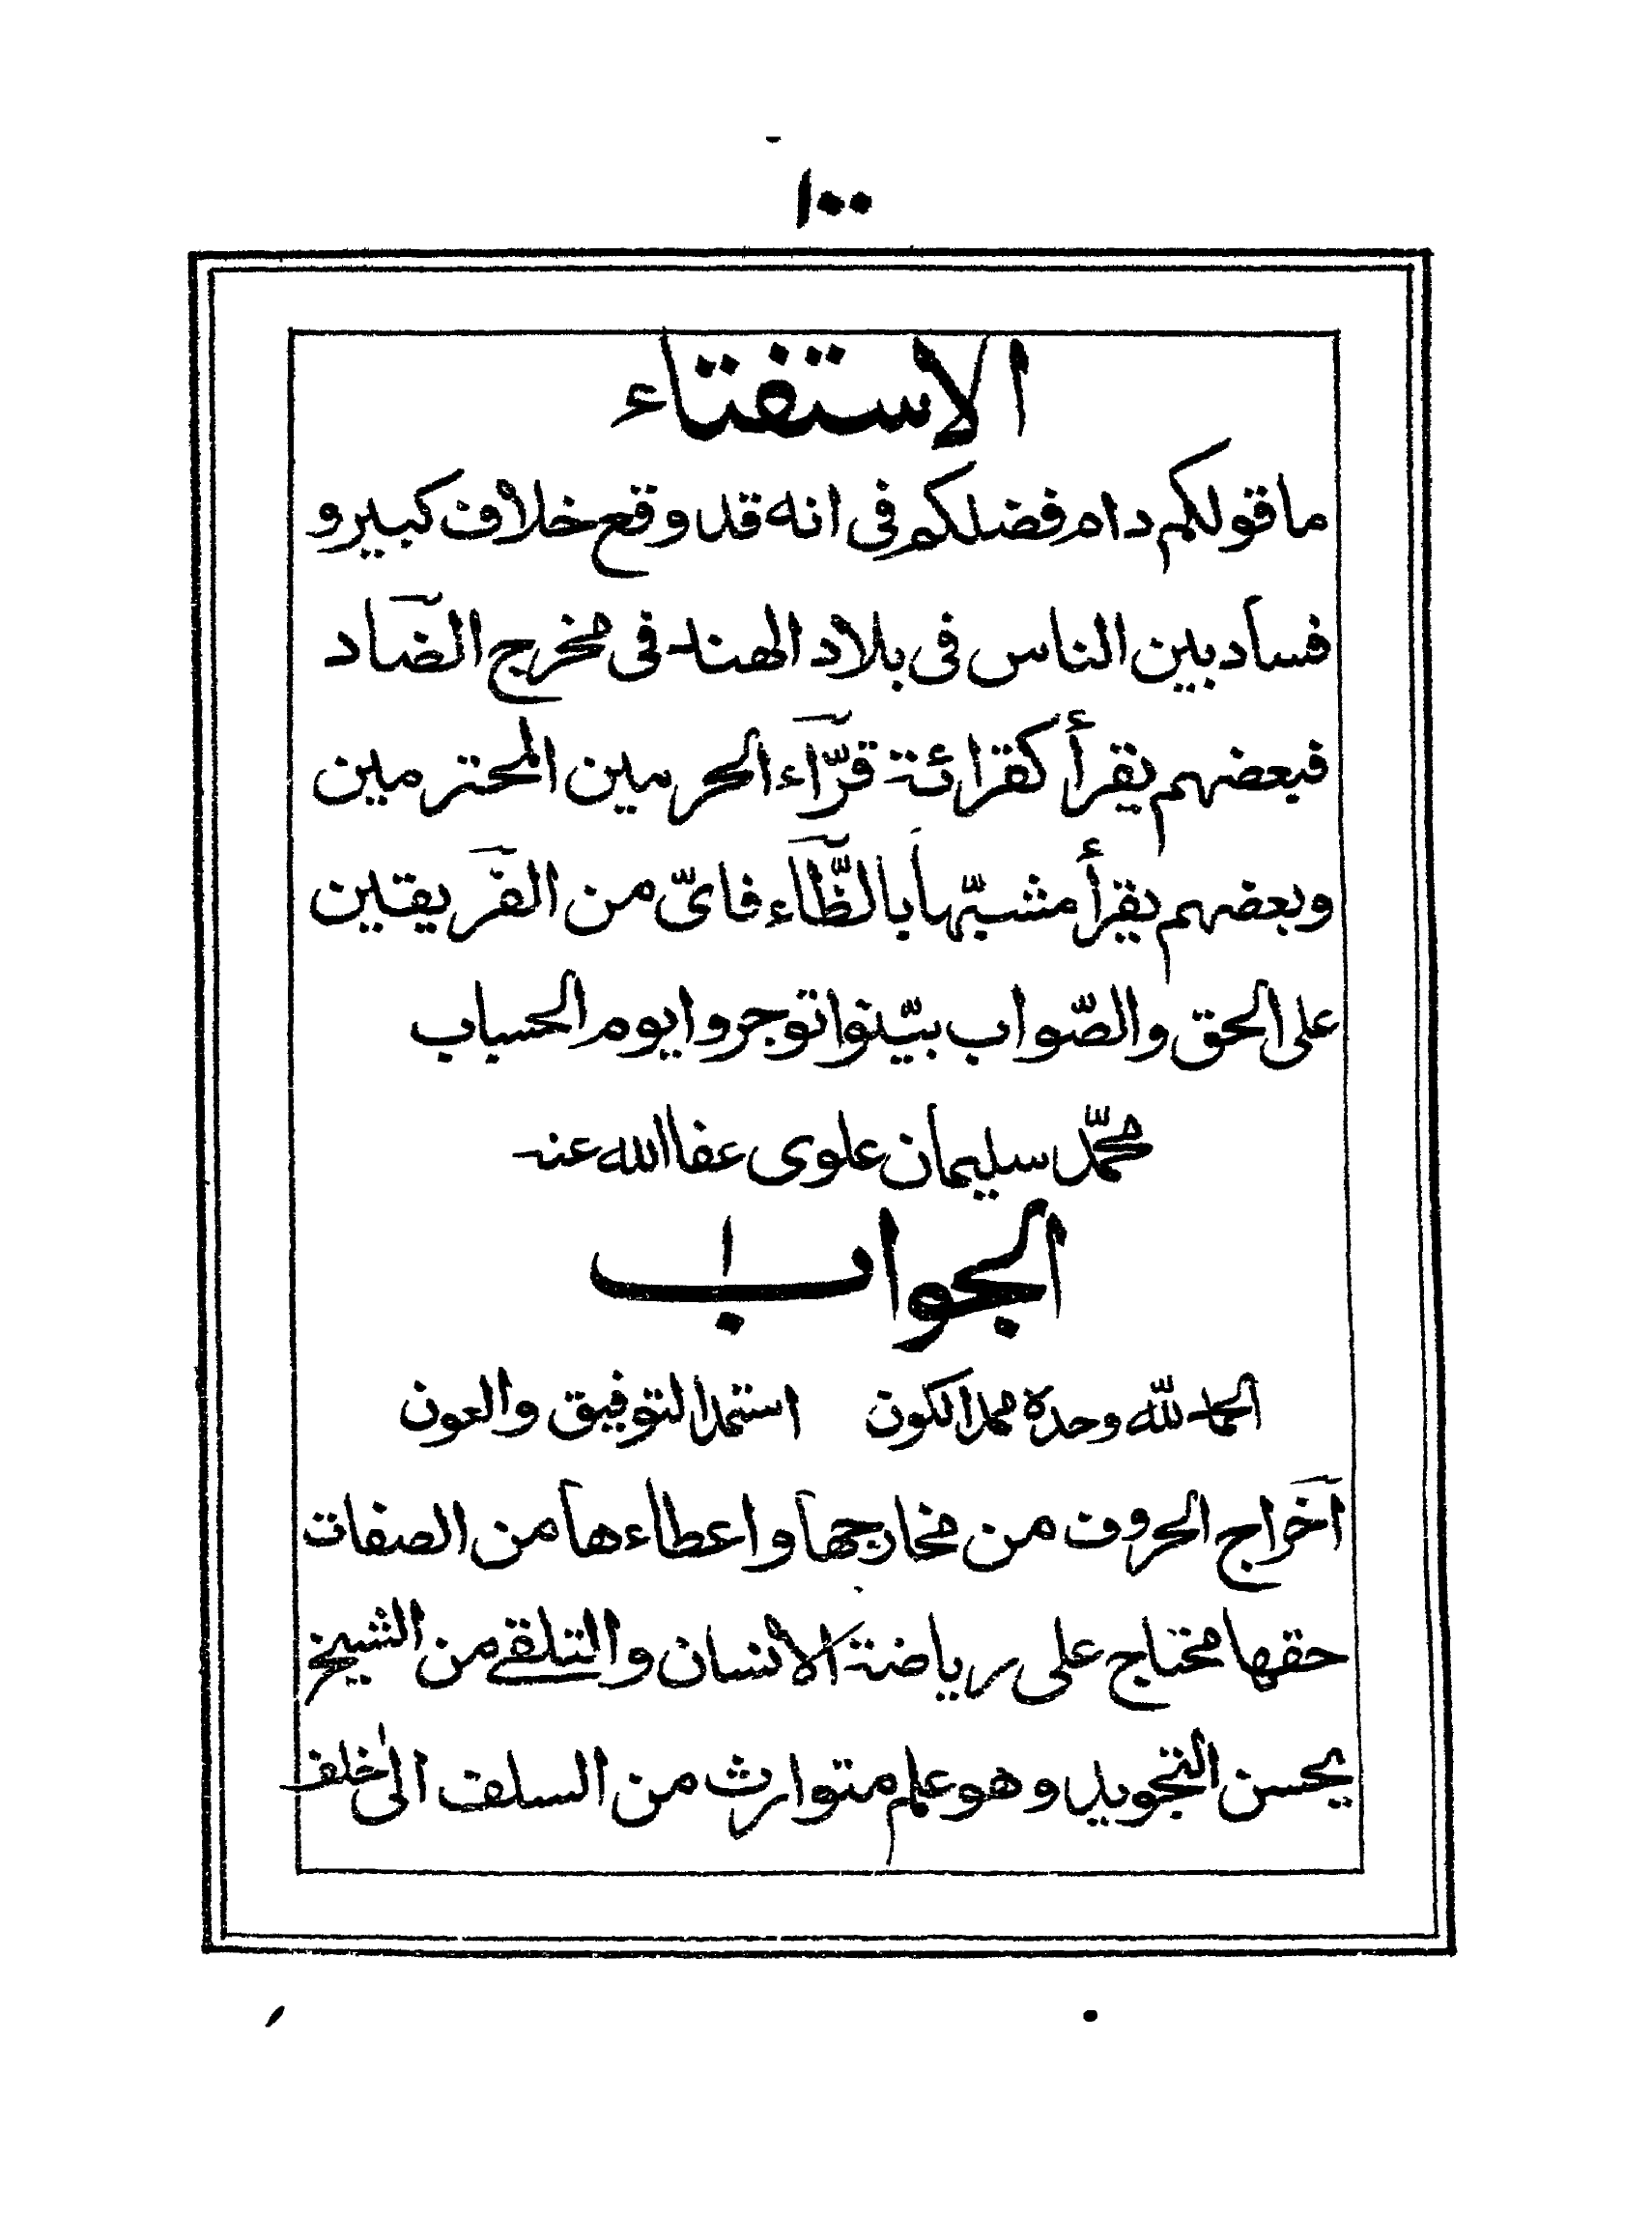 ١٠٠
الاستفتاء
ما قولكم دام فضلكم فى انه قد وقع خلاف كبير و
فساد بين الناس فى بلاد الهند فى مخرج الضاد
فبعضهم يقرأ كقرائة قرّاء الحرمين المحترمين
وبعضهم يقرأ مشبّها بالظّاء فاىّ من الفريقين
على الحق والصّواب بيّنوا توجروا يوم الحساب
محمّد سليمان علوى عفا الله عنه
الجواب
الحمد لله وحده ممد الكون استمد التوفيق والعون
اخراج الحروف من مخارجها واعطاءها من الصفات
حقها محتاج على رياضة الانسان والتلقى من الشيخ
يحسن التجويد وهو علم متوارث من السلف الى خلف